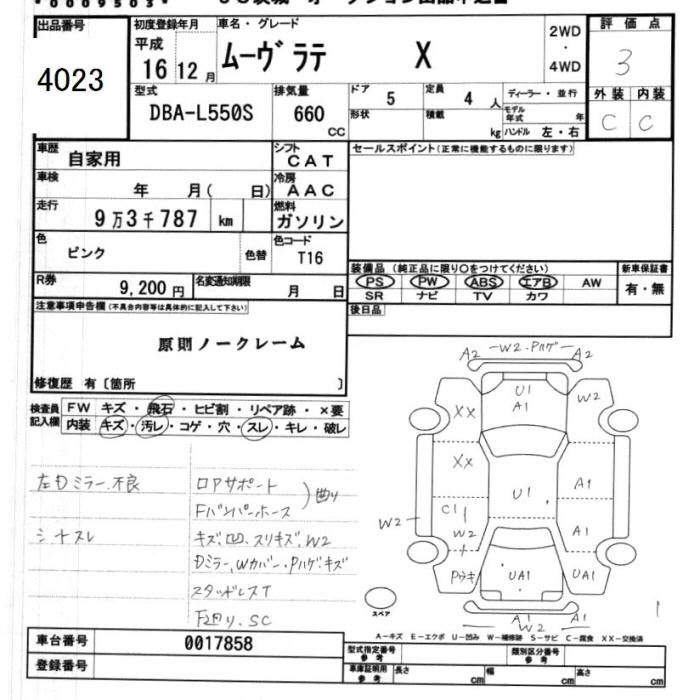 *0009503*
出品番号
4023
初度登録年月
平成
16 12 月
車名・グレード
ムーヴラテ X
2WD
・
4WD
評価点
3
型式
DBA-L550S
排気量
660
CC
ドア 5
定員 4 人
ディーラー・並行
形状
積載 kg
モデル年式 年
ハンドル 左・右
外装 内装
C C
車歴
自家用
シフト
CAT
セールスポイント(正常に機能するものに限ります)
車検
年 月( 日)
冷房
AAC
走行
9万3千787 km
燃料
ガソリン
色
ピンク
色替
色コード
T16
装備品 (純正品に限り○をつけてください)
PS PW ABS エアB AW
SR ナビ TV カワ
新車保証書
有・無
R券
9,200円
名変通知期限
月 日
後日品
注意事項申告欄(不具合内容等は具体的に記入して下さい)
原則ノークレーム
修復歴 有〔箇所 〕
検査員
記入欄
FW キズ・飛石・ヒビ割・リペア跡・×要
内装 キズ・汚レ・コゲ・穴・スレ・キレ・破レ
左Dミラー不良
シートスレ
ロアサポート
Fバンパーホース
)曲り
キズ,凹,スリキズ,W2
Dミラー,Wカバー・Pハゲ・キズ
スタッドレスT
F廻り,SC
A2 W2・Pハゲ A2
U1
A1
XX
W2
XX
U1
A1
C1
W2
W2
A1
Pキズ
UA1
UA1
A1 A1
W2
スペア
A-キズ E-エクボ U-凹み W-補修跡 S-サビ C-腐食 XX-交換済
車台番号
0017858
登録番号
型式指定番号
参考
類別区分番号
参考
車庫証明用
参考
長さ cm
幅 cm
高さ cm